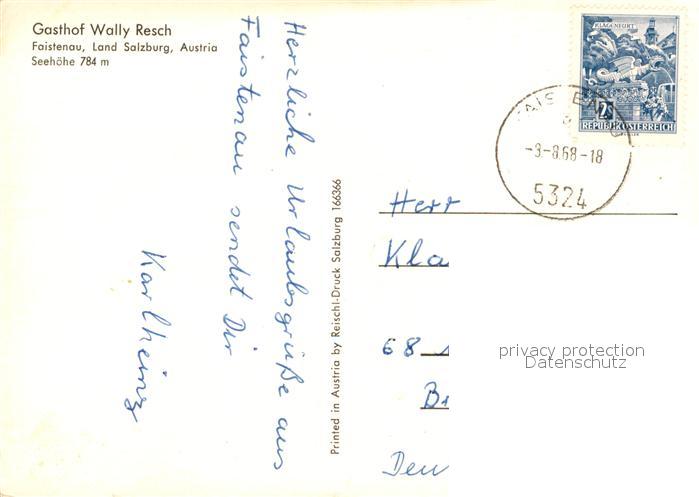 Gasthof Wally Resch
Faistenau, Land Salzburg, Austria
Seehöhe 784 m
Herzliche Urlaubsgrüße aus
Faistenau sendet Dir
Karlheinz
Printed in Austria by Reischl-Druck Salzburg 166366
KLAGENFURT
2S
REPUBLIK ÖSTERREICH
FAISTENAU
-3.-8.68-18
5324
Herr
Kla
68
privacy protection
Datenschutz